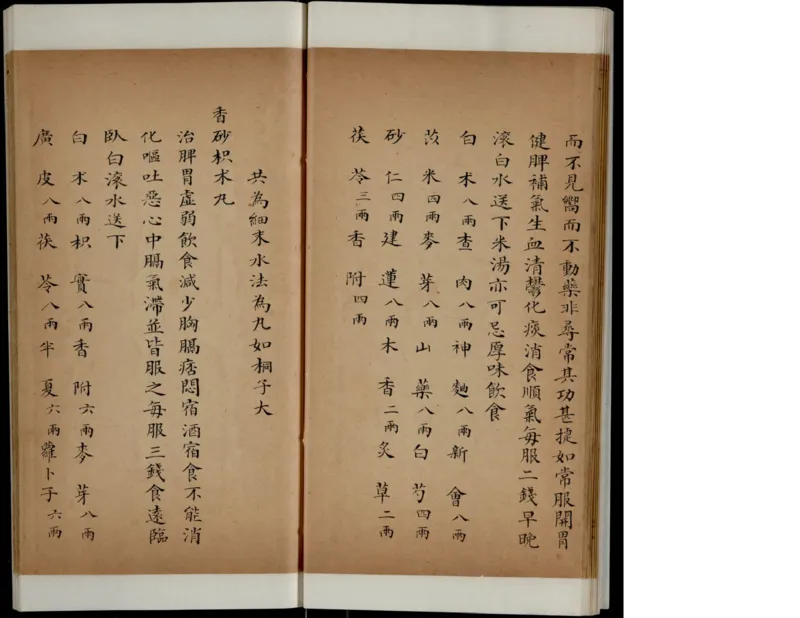 而不見嚮而不動藥非尋常其功甚捷如常服開胃
健脾補氣生血清鬱化痰消食順氣每服二錢早晚
滚白水送下米湯亦可忌厚味飲食
白术八兩查肉八兩神麯八兩新會八兩
苡米四兩麥芽八兩山藥八兩白芍四兩
砂仁四兩建蓮八兩木香二兩炙草二兩
茯苓三兩香附四兩
共為細末水法為丸如桐子大
香砂枳术丸
治脾胃虛弱飲食減少胸膈痞悶宿酒宿食不能消
化嘔吐惡心中膈氣滯並皆服之每服三錢食遠臨
臥白滚水送下
白术八兩枳實八兩香附六兩麥芽八兩
廣皮八兩茯苓八兩半夏六兩蘿卜子六兩